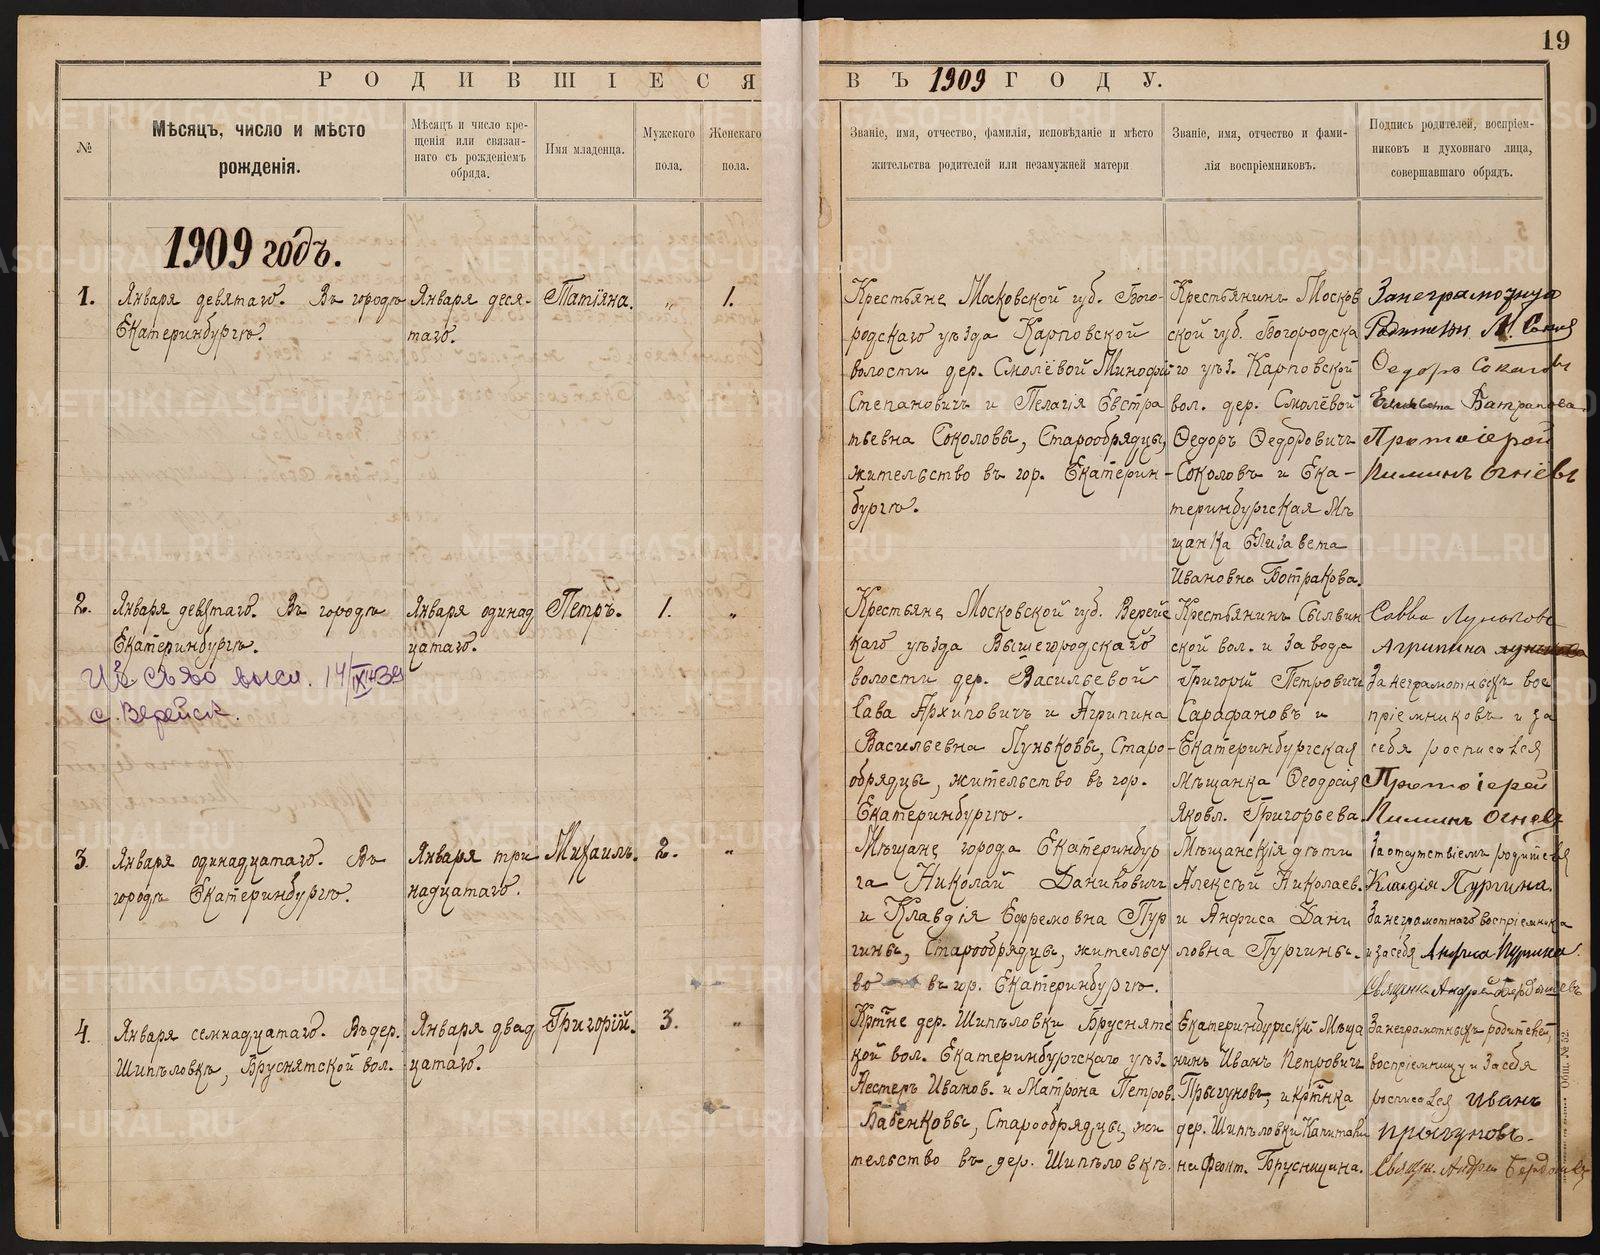 19
РОДИВШІЕСЯ ВЪ 1909 ГОДУ.
№
Мѣсяцъ, число и мѣсто
рожденія.
Мѣсяцъ и число кре-
щенія или связан-
наго съ рожденіемъ
обряда.
Имя младенца.
Мужского
пола.
Женскаго
пола.
Званіе, имя, отчество, фамилія, исповѣданіе и мѣсто
жительства родителей или незамужней матери
Званіе, имя, отчество и фами-
лія воспріемниковъ.
Подпись родителей, воспріем-
никовъ и духовнаго лица,
совершавшаго обрядъ.
1909 годъ.
1.
Января девятаго. Въ городѣ
Екатеринбургѣ.
Января деся-
таго.
Татіяна.
"
1.
Крестьяне Московской губ. Бого-
родскаго уѣзда Карповской
волости дер. Смолёвой Минофій
Степановичъ и Пелагія Евстра
тьевна Соколовы, Старообрядцы,
жительство въ гор. Екатерин-
бургѣ.
Крестьянинъ Москов
ской губ. Богородска
го уѣз. Карповской
вол. дер. Смолёвой
Ѳедоръ Ѳедоровичъ
Соколовъ и Ека-
теринбургская Мѣ
щанка Елизавета
Ивановна Ботракова.
Занеграмотнуя
Ѳедоръ Соколовъ
Елизавета Батракова
Протоіерей
Пиминъ Огнёвъ
2.
Января девятаго. Въ городѣ
Екатеринбургѣ.
14/IX-39
с. Верейск.
Января одинад
цатаго.
Петръ.
1.
"
Крестьяне Московской губ. Верейс
каго уѣзда Вышегородскаго
волости дер. Васильевой
Сава Архиповичъ и Агрипина
Васильевна Луньковы, Старо-
обрядцы, жительство въ гор.
Екатеринбургѣ.
Крестьянинъ Сылвин
ской вол. и завода
Григорій Петровичъ
Сарафановъ и
Екатеринбургская
Мѣщанка Ѳеодосія
Яковл. Григорьева.
Савва Луньковъ
Агрипина Лунькова
Занеграмотныхъ вос
пріемниковъ и за
себя росписался
Протоіерей
Пиминъ Огнёвъ
3.
Января одинадцатаго. Въ
городѣ Екатеринбургѣ.
Января три
надцатаго.
Михаилъ.
2.
"
Мѣщане города Екатеринбур
га Николай Даниловичъ
и Клавдія Ефремовна Пур
гины, Старообрядцы, жительст
во въ гор. Екатеринбургѣ.
Мѣщанскія дѣти
Алексѣй Николаев.
и Анфиса Дани
ловна Пургины.
За отсутствіемъ родителя
Клавдія Пургина.
Занеграмотнаго воспріемника
и засебя Анфиса Пургина.
Священ. Андрей Бердышевъ
4.
Января семнадцатаго. Въ дер.
Шипѣловкѣ, Бруснятской вол.
Января двад
цатаго.
Григорій.
3.
"
Кртне дер. Шипѣловки Бруснятс
кой вол. Екатеринбургскаго уѣз.
Нестеръ Иванов. и Матрона Петров.
Бабенковы, Старообрядцы, жи
тельство въ дер. Шипѣловкѣ.
Екатеринбургскій Мѣща
нинъ Иванъ Петровичъ
Прыгуновъ, и кртнка
дер. Шипѣловки Капитоли
на Феокт. Брусницина.
Занеграмотныхъ родителей,
воспріемницу и засебя
росписался Иванъ
Прыгуновъ.
Свящ. Андрей Бердышевъ
METRIKI.GASO-URAL.RU